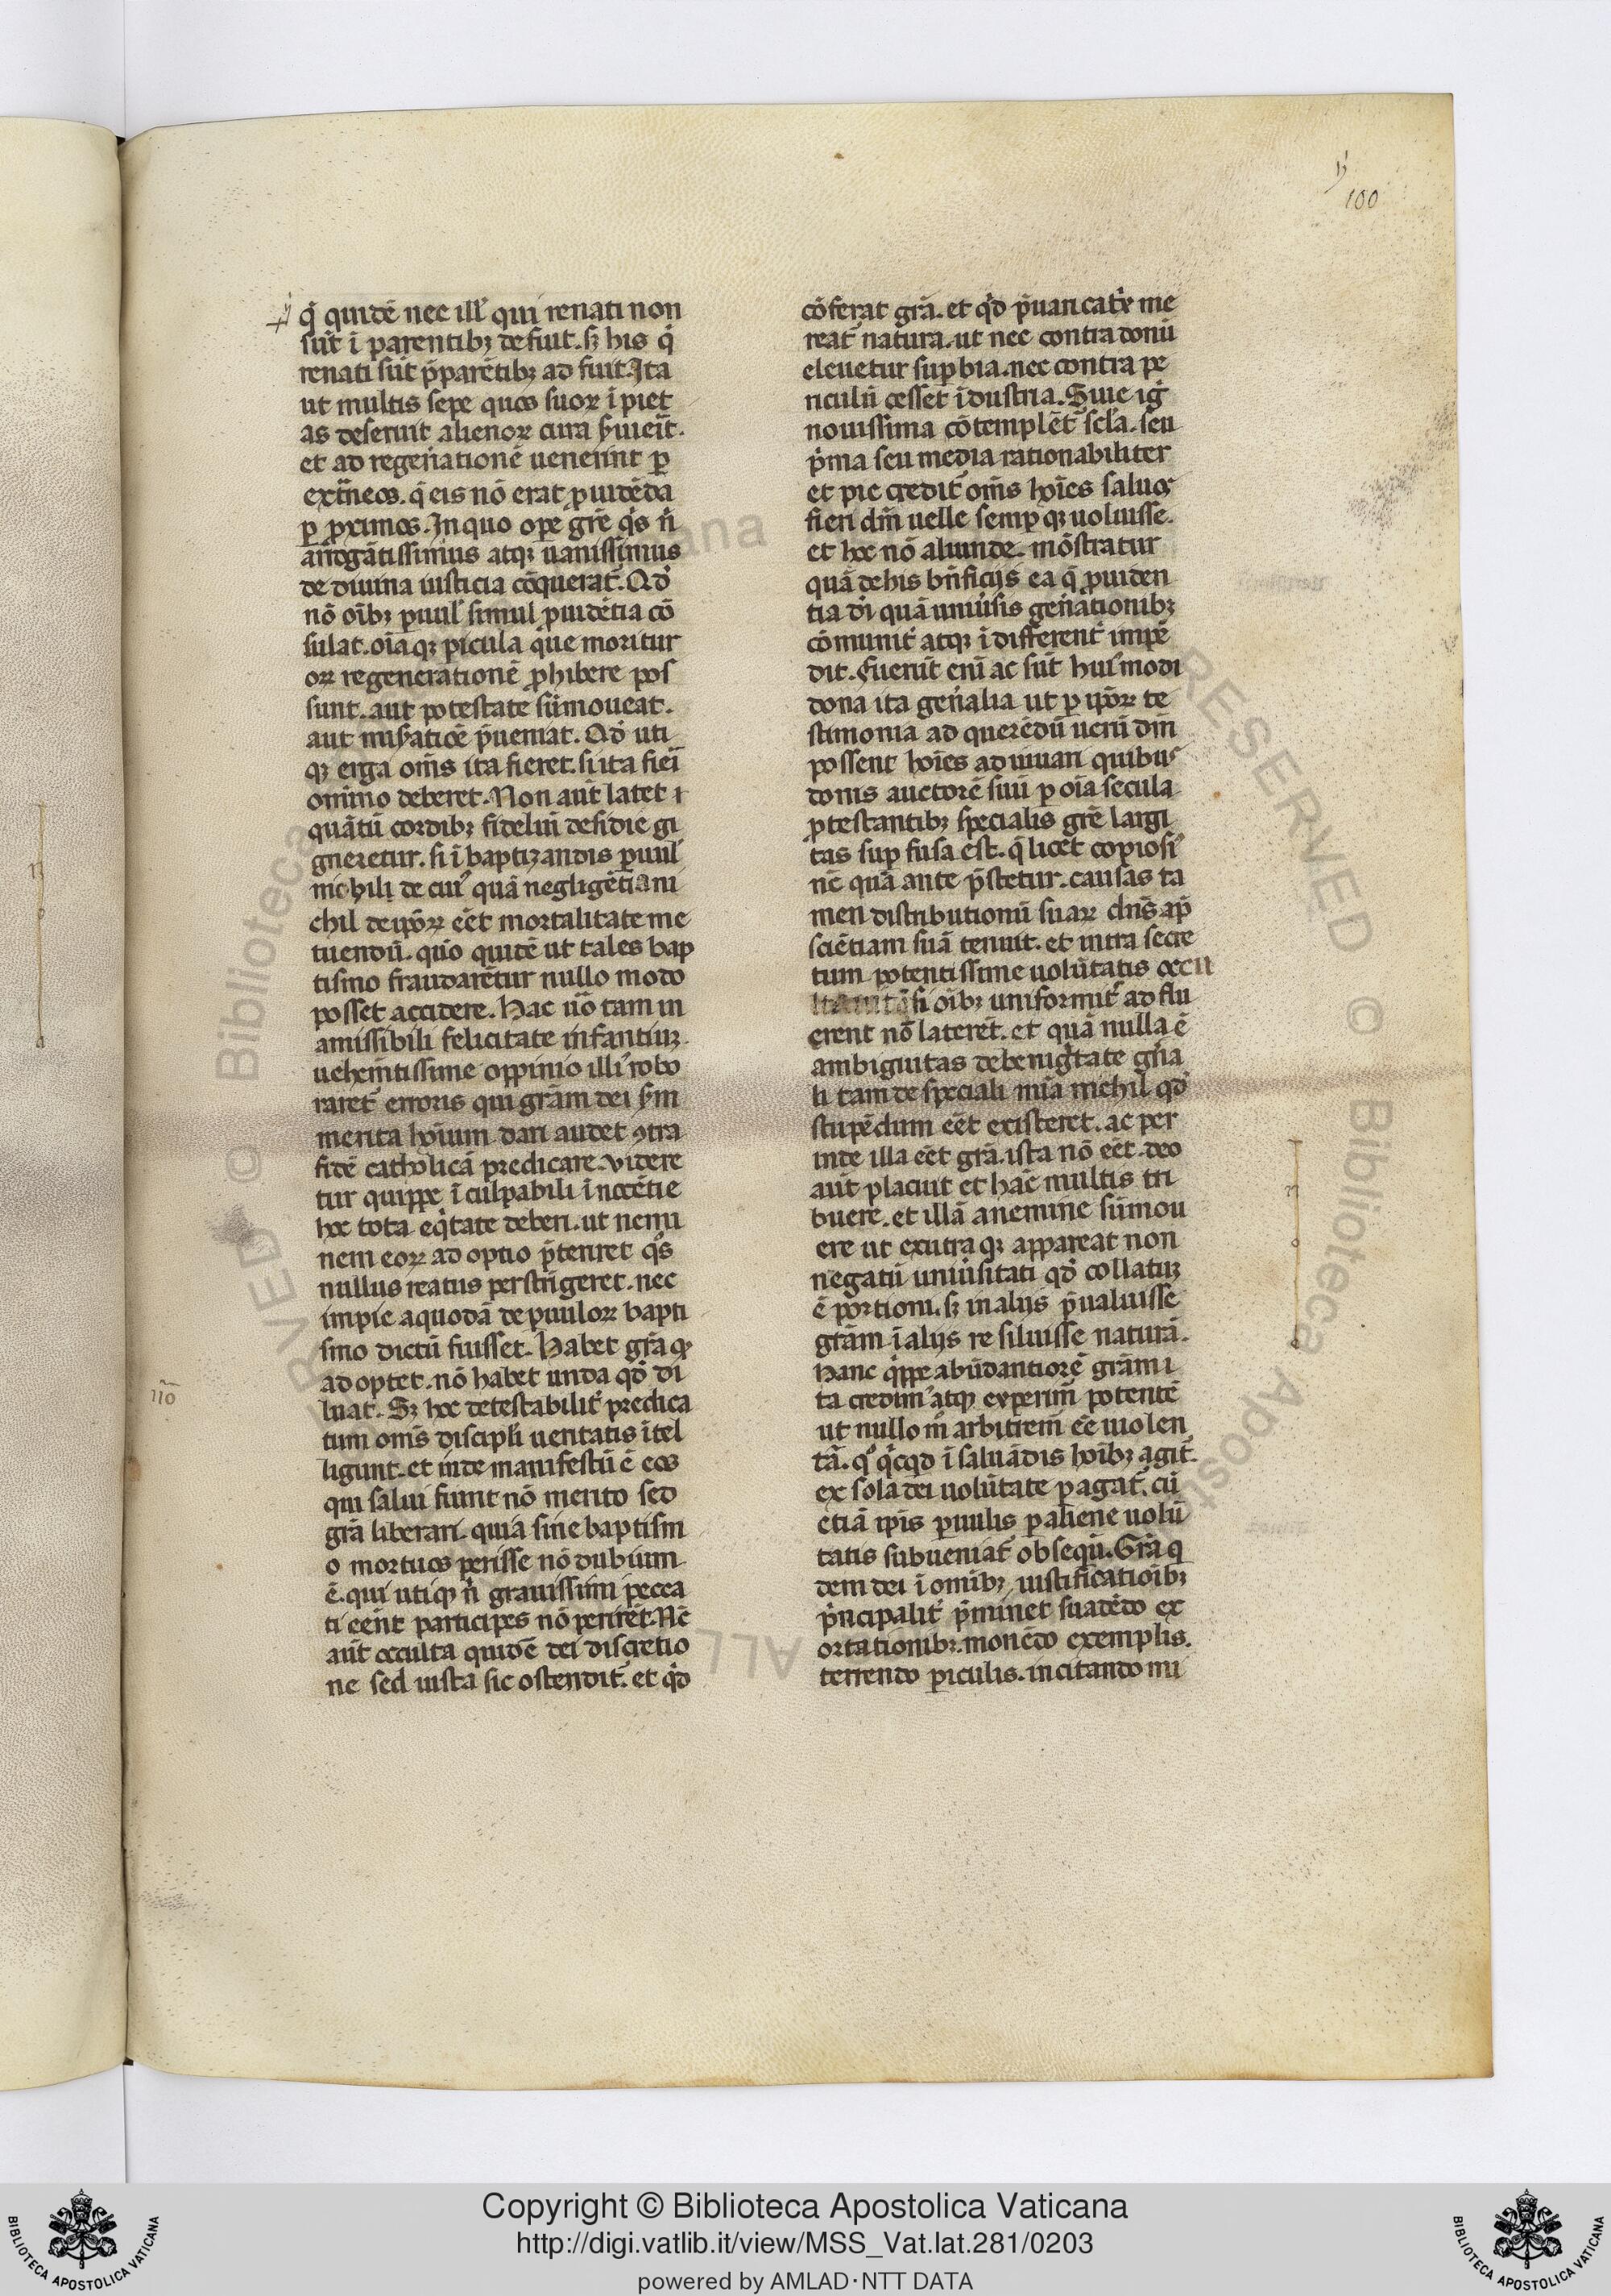 100
q̇ quidē nec ill᾽ qui renati non
sūt ī parentibꝫ defuit. sꝫ his q̇
renati sūt p̄parētibꝫ ad fuit. Ita
ut multis sepe quos suoꝝ īpiet
as deseruit alienoꝝ cura
et ad regen̄ationē uenerint ꝑ
ext̄neos. q̄ eis nō erat ꝓuidēda
ꝑ ꝓximos. In quo oꝑe grē q̇s n̄
arrogātissimus atqꝫ uanissimus
de diuina iusticia cōquerat᷑. Qd̓
nō oībꝫ ꝑuul᾽ simul ꝓuidētia cō
sulat. oīaqꝫ ꝑicula q̄ue moritur
oꝝ regenerationē ꝓhibere pos
sunt. aut potestate sūmoueat.
aut p̄ueniat. Qd̓ uti
qꝫ erga om̄s ita fieret. si ita fieri
omīno deberet. Non aūt latet
quātū cordibꝫ fideliū desidie gi
gneretur. si ī baptizandis ꝑuul᾽
nichili de cui᾽ quā negligētia ni
chil de ip̄oꝝ eēt mortalitate me
tuendū. quo quidē ut tales bap
tismo fraudarētur nullo modo
posset accidere. Hac ūo tam in
amissibili felicitate infantiuꝫ
uehemītissime oppinio illi᾽ robo
raret᷑ erroris qui grām dei
merita hoīum dari audet ꝯtra
fidē catholicā predicare. Videre
tur quippe ī culpabili īnocētie
hoc tota eq̇tate deberi. ut nemi
nem eoꝝ ad optio p̄teriret q̇s
nullus reatus perstrīgeret. nec
impie a quodā de ꝑuuloꝝ bapti
smo dictū fuisset. Habet grā qꝫ
ad optet. nō habet unda qd̓ di
luat. Sꝫ hoc detestabilit᷑ predica
tum om̄s discipli ueritatis ītel
ligunt. et inde manifestū ē eos
qui salui fiunt nō merito sed
grā liberari. quia sine baptism
o mortuos perisse nō dubium
ē. qui utiqꝫ n̄ grauissimi pecca
ti eēnt participes nō perirēt. Nē
aūt occulta quidē dei discretio
ne sed iusta sic ostendit᷑. et q̇d
cōferat grā. et q̇d p̄uaricat᷑x me
reat᷑ natura. ut nec contra donū
eleuetur suꝑbia. nec contra pe
riculū cesset īdustria. Siue ig᷑
nouissima cōtemplēt᷑ scl̄a. seu
p̄ma seu media rationabiliter
et pie credit᷑ om̄s hoīes saluos
fieri dm̄ uelle semꝑ qꝫ uoluisse.
et hoc nō aliunde. mōstratur
quā de his bn̄ficijs ea q̄ ꝓuiden
tia di̇ quā uniūsis gen̄ationibꝫ
cōmunit᷑ atqꝫ īdifferent᷑ impē
dit. Fuerūt enī ac sūt hui᾽modi
dona ita gen̄alia ut ꝑ ip̄oꝝ te
stimonia ad querēdū uerū dm̄
possent hoīes ad iuuari quibu᾽
donis auctorē suū ꝑ oīa secula
ꝓtestantibꝫ specialis grē largi
tas suꝑ fusa est. q̄ licet copiosi᾽
nē quā ante p̄stetur. causas ta
men distributionū suaꝝ dn̄s ap̄
sciētiam suā tenuit. et intra secre
tum potentissime uolūtatis occu
si oībꝫ uniformit᷑ ad flu
erent nō laterēt. et quā nulla ē
ambiguitas de benig̓tate gn̄a
li tam de speciali mīa nichil qd̓
stupēdum eēt existeret. ac per
inde illa eēt grā. ista nō eēt. deo
aūt placuit et hāc multis tri
buere. et illā a nemine sūmou
ere ut exutraqꝫ appareat non
negatū uniūsitati qd̓ collatuꝫ
ē portioni. sꝫ in alijs p̄ualuisse
grām ī alijs re siluisse naturā.
Hanc q̇ppe abūdantiorē grām i
ta credim᾽ atqꝫ experim̄ potentē
ut nullo m̄ arbitrem̄ eē̄ uiolen
tā. q̇cqd ī saluādis hoībꝫ agit᷑.
ex sola dei uolūtate ꝑagat᷑. cū
etiā ip̄is ꝑuulis ꝑ aliene uolū
tatis subueniat᷑ obsequ. Grā q
dem dei ī omībꝫ iustificatioībꝫ
p̄ncipalit᷑ p̄minet suadēdo ex
ortationibꝫ. monēdo exemplis.
terrendo ꝑiculis. incitando mi
Copyright © Biblioteca Apostolica Vaticana
http://digi.vatlib.it/view/MSS_Vat.lat.281/0203
powered by AMLAD·NTT DATA
BIBLIOTECA APOSTOLICA VATICANA
BIBLIOTECA APOSTOLICA VATICANA